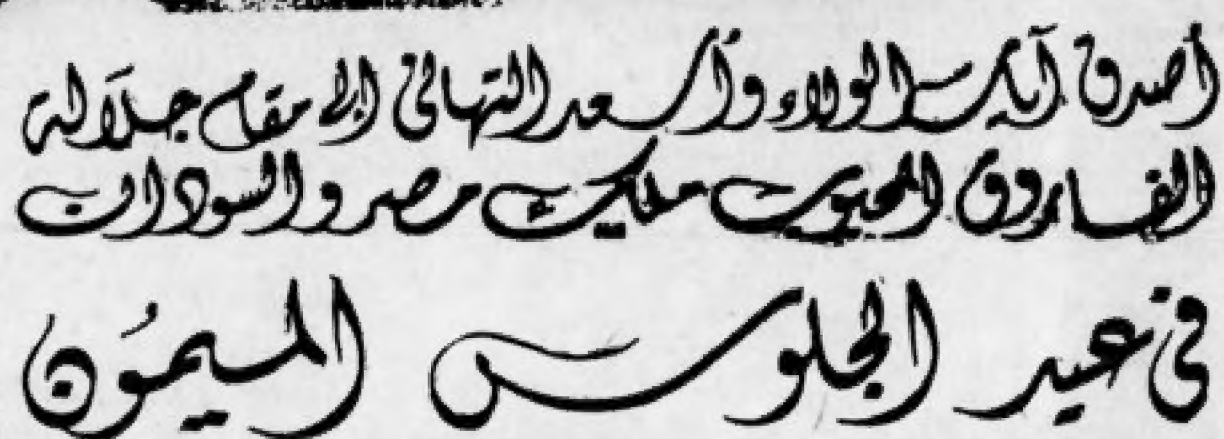 أصدق آيات الولاء وأسعد التهاني إلى مقام جلالة
الفاروق المحبوب مليك مصر والسودان
في عيد الجلوس الميمون